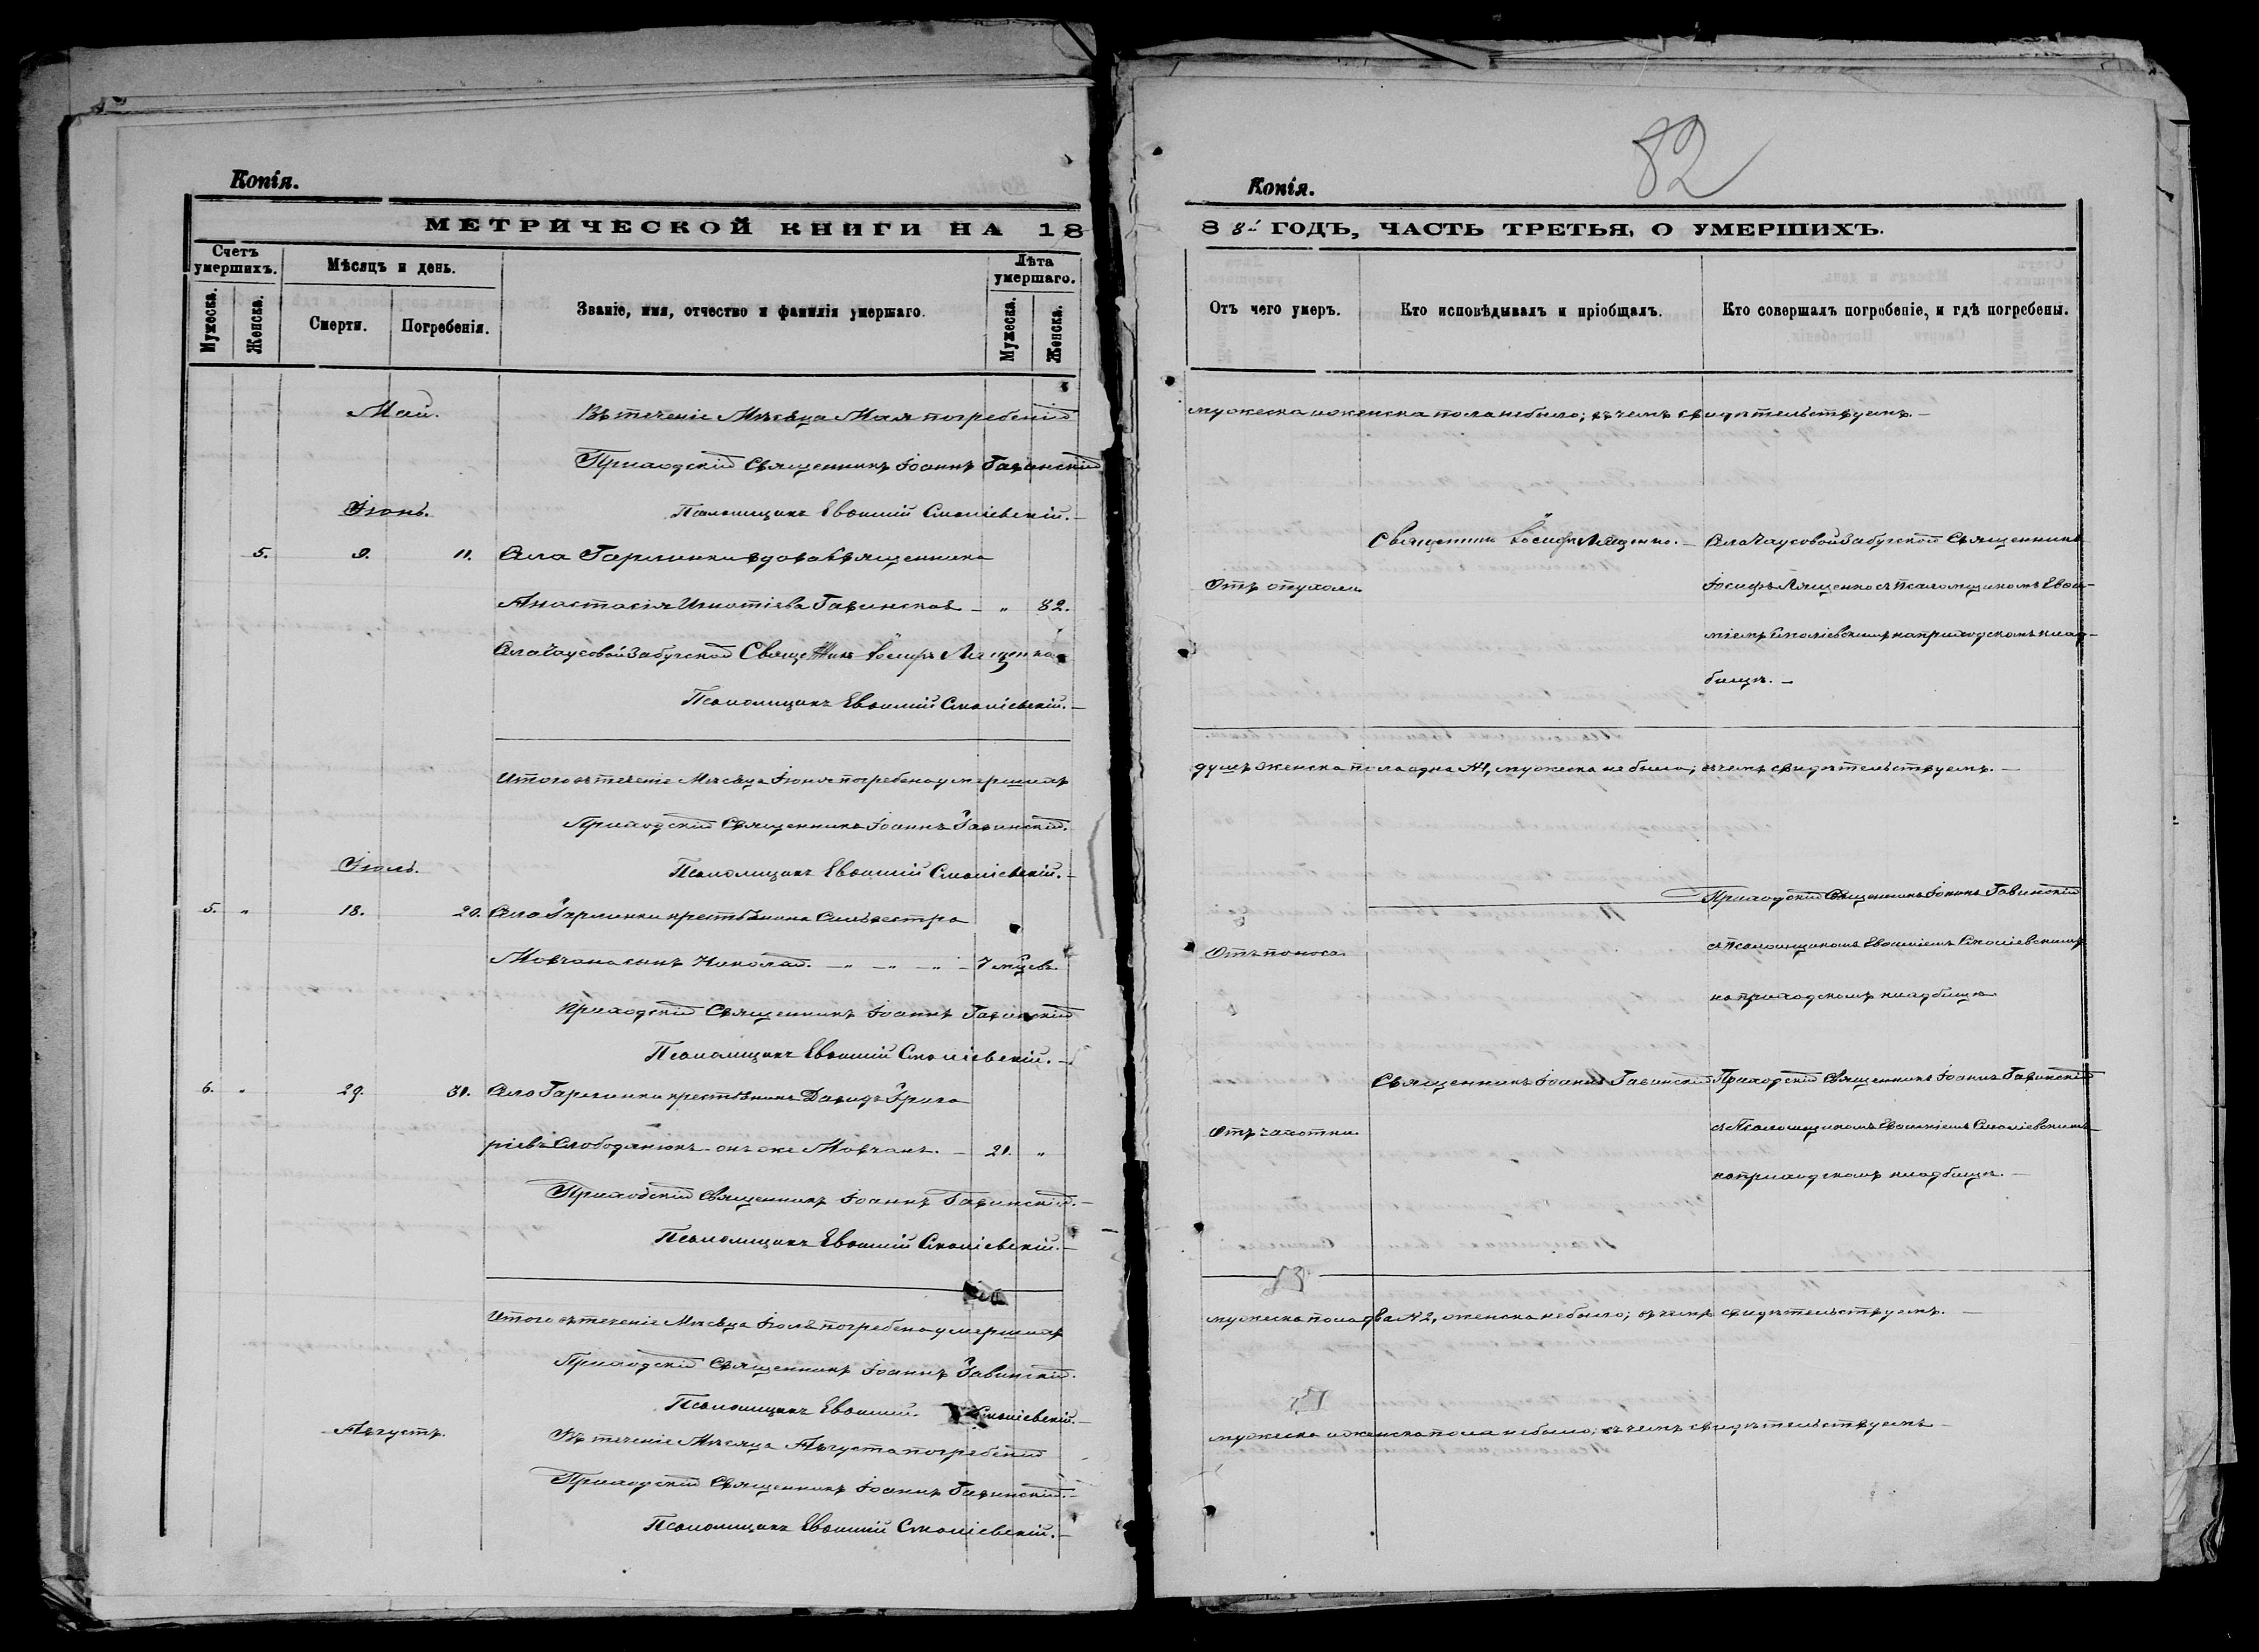 Копія.
МЕТРИЧЕСКОЙ КНИГИ НА 18
Счетъ умершихъ.
Мѣсяцъ и день.
Званіе, имя, отчество и фамилія умершаго.
Лѣта умершаго.
Мужеска.
Женска.
Смерти.
Погребенія.
Мужеска.
Женска.
Май.
Въ теченіе Мѣсяца Мая погребеній
Приходскій Священникъ Іоаннъ Гавинскій
Псаломщикъ Евѳимій Смоліевскій.-
Іюнь.
5. 9. 11. Села Гарманки вдова Священника
Анастасія Игнатіева Гавинская - " 82.
Села Чаусовой Забугской Священникъ Іосифъ Лященко
Псаломщикъ Евѳимій Смоліевскій.-
Итого въ теченіе Мѣсяца Іюня погребено умершихъ
Приходскій Священникъ Іоаннъ Гавинскій.
Псаломщикъ Евѳимій Смоліевскій.-
Іюль.
5. " 18. 20. Села Гарманки крестьянина Сильвестра
Мовчана сынъ Николай. - " - " - " - 7 мѣцевъ.
Приходскій Священникъ Іоаннъ Гавинскій
Псаломщикъ Евѳимій Смоліевскій.-
6. " 29. 31. Села Гарманки крестьянинъ Давидъ Григо
ріевъ Слободянюкъ - онъ же Мовчанъ. - 21. "
Приходскій Священникъ Іоаннъ Гавинскій.-
Псаломщикъ Евѳимій Смоліевскій.-
Итого въ теченіе Мѣсяца Іюля погребено умершихъ
Приходскій Священникъ Іоаннъ Гавинскій.
Псаломщикъ Евѳимій Смоліевскій.-
Августъ.
Въ теченіе Мѣсяца Августа погребеній
Приходскій Священникъ Іоаннъ Гавинскій.-
Псаломщикъ Евѳимій Смоліевскій.-
82
Копія.
88й ГОДЪ, ЧАСТЬ ТРЕТЬЯ, О УМЕРШИХЪ.
Отъ чего умеръ.
Кто исповѣдывалъ и пріобщалъ.
Кто совершалъ погребеніе, и гдѣ погребены.
мужеска и женска пола небыло; въ чемъ свидѣтельствуемъ.-
Священникъ Іосифъ Лященко.-
Села Чаусовой Забугской Священникъ
Отъ опухоли
Іосифъ Лященко съ Псаломщикомъ Евѳи-
міемъ Смоліевскимъ на приходскомъ клад-
бищѣ.-
душъ женска пола одна №1, мужеска не было; въ чемъ свидѣтельствуемъ.-
Приходскій Священникъ Іоаннъ Гавинскій
Отъ поноса.
съ Псаломщикомъ Евѳиміемъ Смоліевскимъ
на приходскомъ кладбищѣ
Священникъ Іоаннъ Гавинскій
Приходскій Священникъ Іоаннъ Гавинскій
Отъ чахотки.
съ Псаломщикомъ Евѳиміемъ Смоліевскимъ
на приходскомъ кладбищѣ.-
мужеска пола два №2, женска не было; въ чемъ свидѣтельствуемъ.-
мужеска и женска пола небыло; въ чемъ свидѣтельствуемъ-